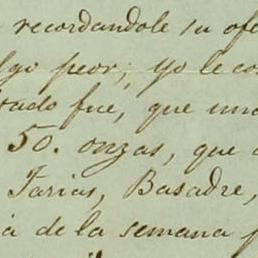 recordandole su ofe
lgo peor; yo le co
tado fue, que un
50. onzas, que
Farias, Basadre,
a de la semana p